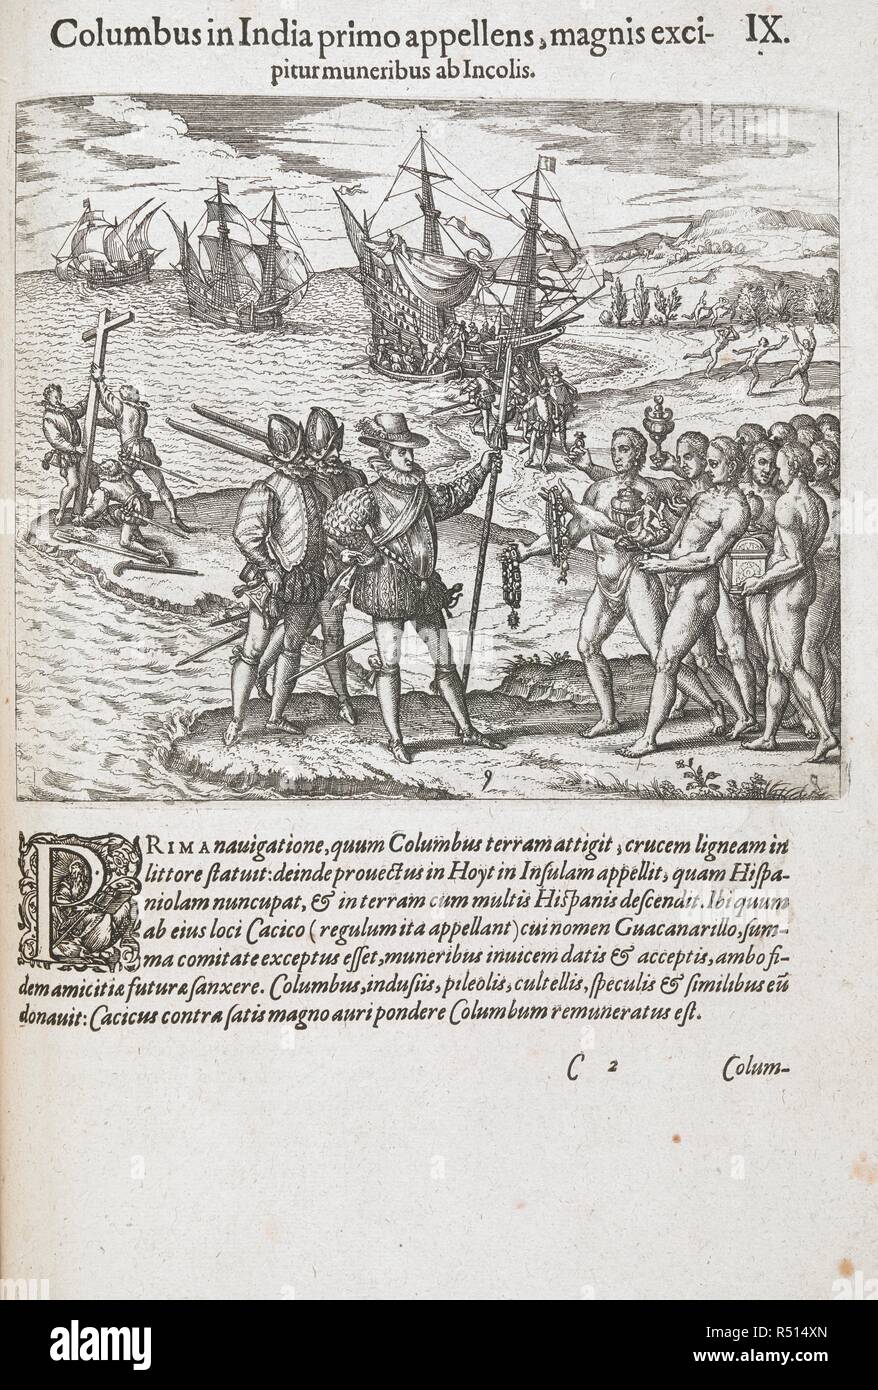 Columbus in India primo appellens, magnis exci- IX.
pitur muneribus ab Incolis.
9
PRIMA nauigatione, quum Columbus terram attigit, crucem ligneam in
littore ſtatuit: deinde prouectus in Hoyt in Inſulam appellit, quam Hiſpa-
niolam nuncupat, & in terram cum multis Hiſpanis deſcendit. Ibi quum
ab eius loci Cacico (regulum ita appellant) cui nomen Guacanarillo, ſum-
ma comitate exceptus eſſet, muneribus inuicem datis & acceptis, ambo fi-
dem amicitiæ futuræ ſanxere. Columbus, induſiis, pileolis, cultellis, ſpeculis & ſimilibus eū
donauit: Cacicus contra ſatis magno auri pondere Columbum remuneratus eſt.
C 2 Colum-
alamy
alamy
alamy
a
a
a
a
alamy
Image ID: R514XN
www.alamy.com